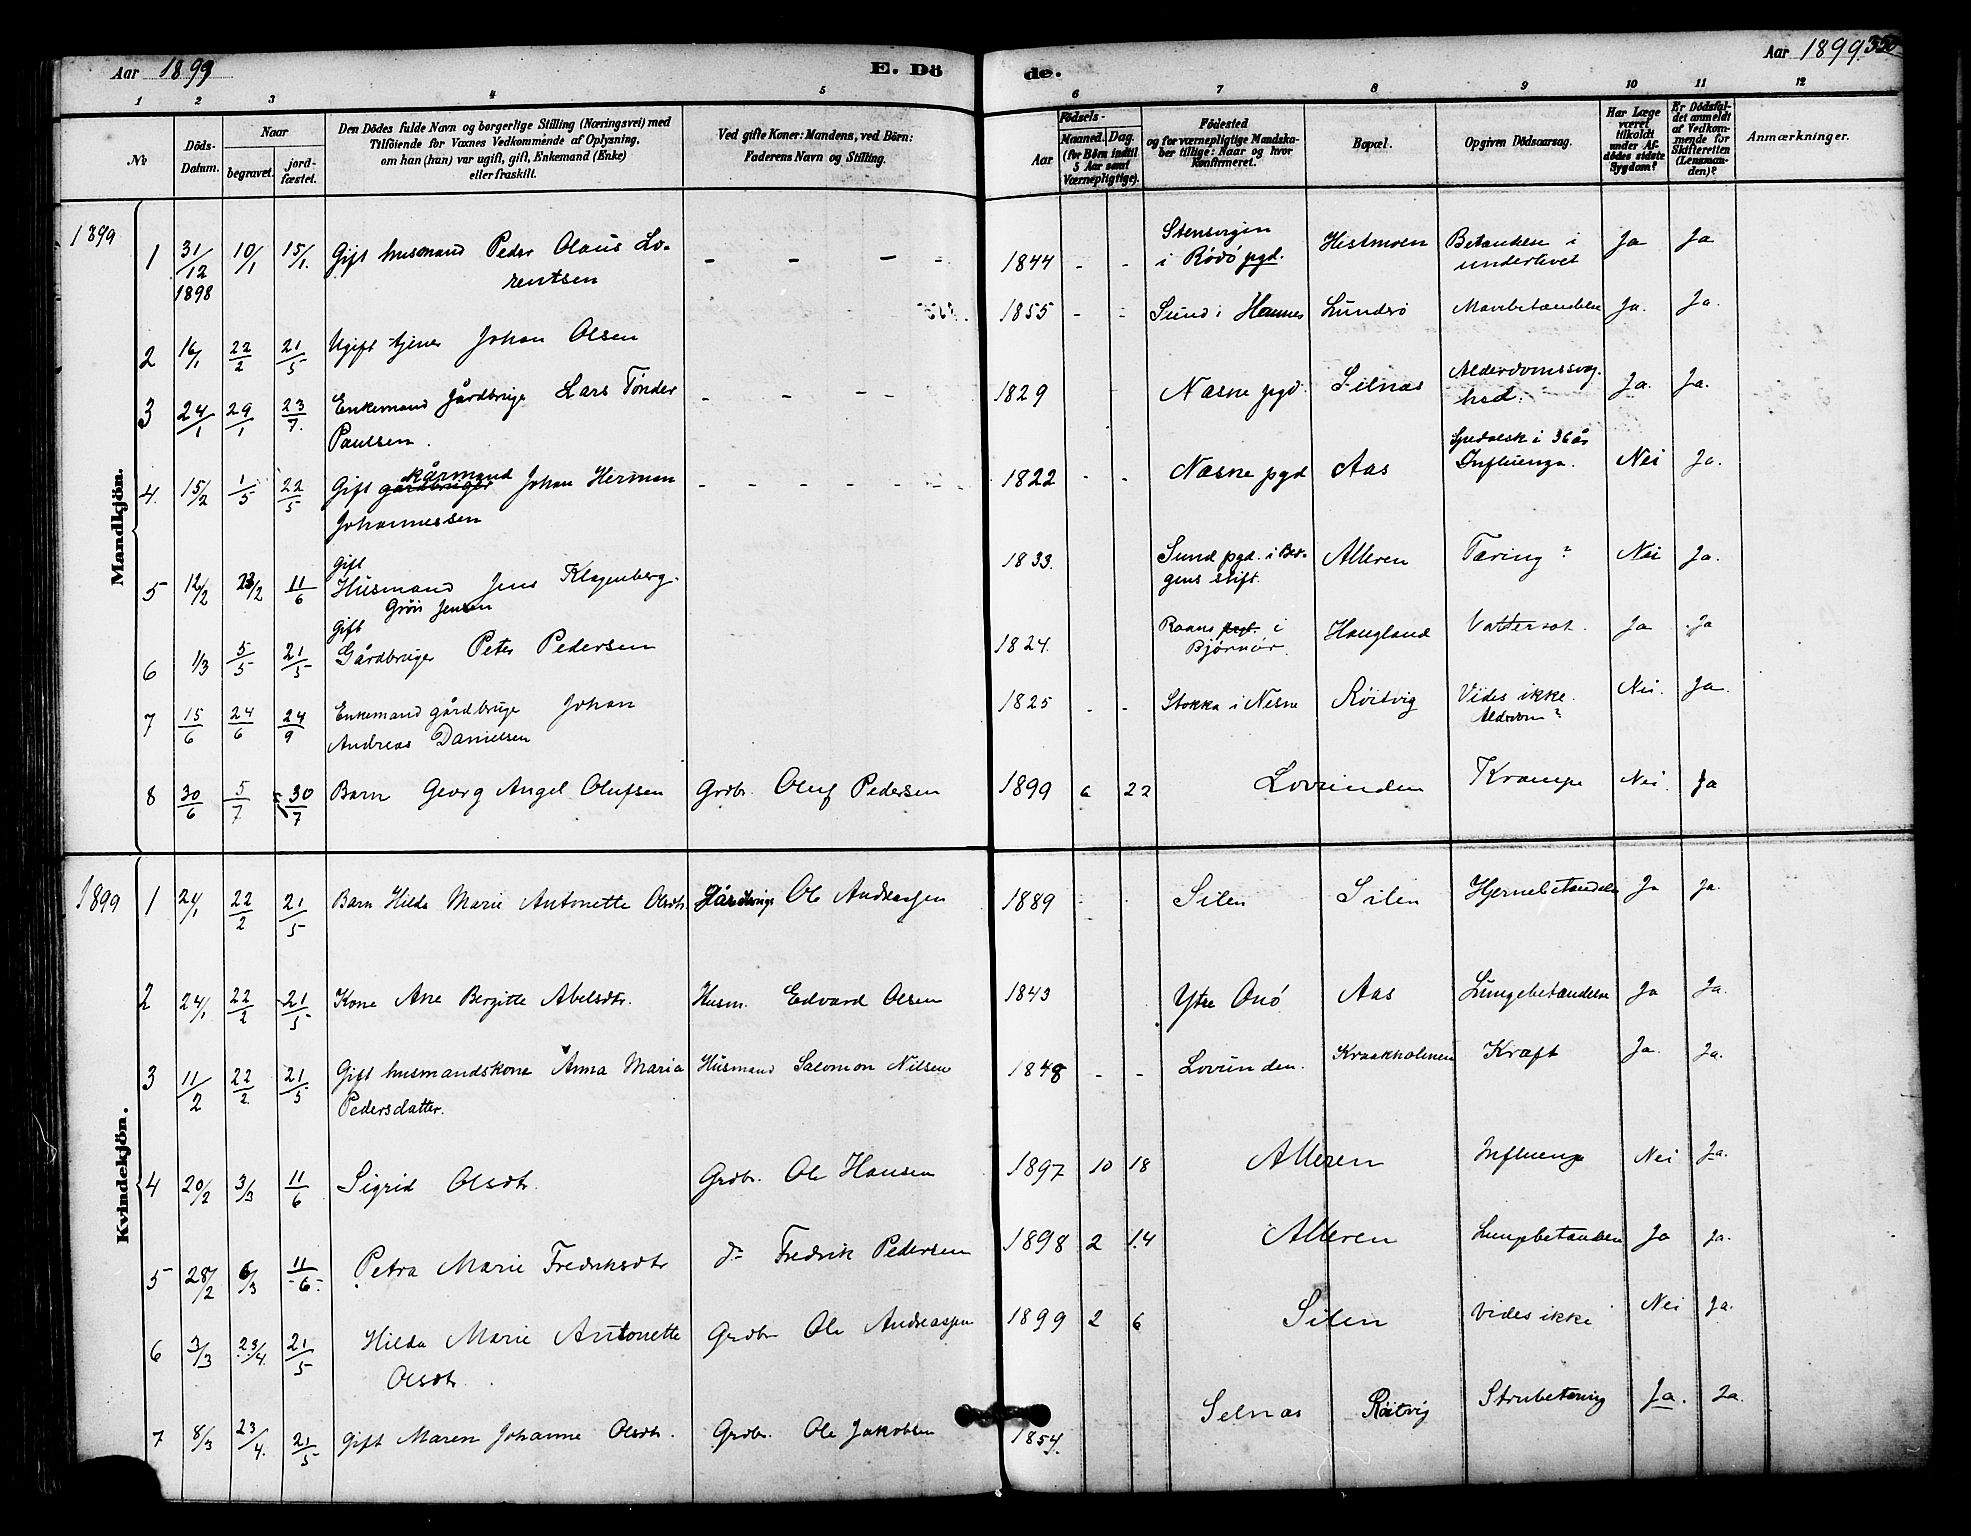 Aar 1899
E. Dö
de.
Aar 1899.
1 2 3 4 5 6 7 8 9 10 11 12
№
Döds-Datum.
Naar
begravet.
jord-fæstet.
Den Dödes fulde Navn og borgerlige Stilling (Næringsvei) med
Tilföiende for Voxnes Vedkommende af Oplysning,
om han (hun) var ugift, gift, Enkemand (Enke)
eller fraskilt.
Ved gifte Koner: Mandens, ved Börn:
Faderens Navn og Stilling.
Födsels-
Aar
Maaned. Dag.
(for Börn indtil
5 Aar samt
Værnepligtige).
Födested
og for værnepligtige Mandska-
ber tillige: Naar og hvor
Konfirmeret.
Bopæl.
Opgiven Dödsaarsag.
Har Læge
været
tilkaldt
under Af-
dödes sidste
Sygdom?
Er Dödsfal-
det anmeldt
af Vedkom-
mende for
Skifteretten
(Lensman-
den)?
Anmærkninger.
Mandkjön.
1899
1 31/12 1898 10/1 15/1 Gift husmand Peder Olaus Lo-
rentsen - - - - 1844 - - Stensvigen
i Rödö pgd. Hestmoen Betændelse i
underlivet Ja Ja
2 16/1 22/2 21/5 Ugift tjener Johan Olsen 1855 - - Sund i Hemnes Lundsö Mavebetændelse Ja. Ja.
3 24/1 29/1 23/7 Enkemand Gårdbruge Lars Tönder
Paulsen. - - - - 1829 - Næsne pgd. Selnæs Alderdomssvag-
hed. Ja. Ja.
4. 15/2 1/5 22/5 Gift gårdbruger kårmand Johan Herman
Johannessen - - - - - - 1822 - - Næsne pgd Aas Spedalsk i 36 år
Influenza. Nei Ja.
5 12/2 23/2 11/6 Gift
Husmand Jens Klagenberg
Grön Jensen 1833. Sund pgd. i Ber-
gens stift. Alteren Tæring? Nei Ja.
6 1/3 5/5 21/5 Gift
Gårdbruger Peter Pedersen 1824. Roans pgd. i
Bjørnør. Haugland Vattersot. Ja Ja
7 15/6 24/6 24/9 Enkemand gårdbruge Johan
Andreas Danielsen 1825 - - Stokka i Nesne Röitvig Vides ikke.
Alderdom? Nei. Ja.
8 30/6 5/7 30/7 Barn Georg Angel Olufsen Grdbr. Oluf Pedersen 1899 6 22 Lovunden Krampe Nei. Ja
Kvindekjön.
1899
1 24/1 22/2 21/5 Barn Hilda Marie Antonette Olsdtr Gårdbruge Ole Andreassen 1889 Silen Silen Hjernebetændelse Ja Ja.
2 24/1 22/2 21/5 Kone Ane Bergitte Abelsdtr. Husm. Edvard Olsen 1843 Ytre Onö Aas Lungebetændelse Ja Ja.
3 11/2 22/2 21/5 Gift husmandskone Anna Maria
Pedersdatter. Husmand Salomon Nilsen 1848 - - Lovunden. Kraakholmen Kræft Ja. Ja.
4 20/2 3/3 11/6 Sigrid Olsdtr. Grdbr. Ole Hansen 1897 10 18 Alteren Influenza Nei Ja.
5 28/2 6/3 11/6 Petra Marie Fredriksdtr do Fredrik Pedersen 1898 2 14 Alteren Lungebetændelse Ja Ja.
6 3/3 23/4. 21/5 Hilda Marie Antonette
Olsdtr. Grdbr Ole Andreassen 1899 2 6 Silen Vides ikke Nei Ja.
7 8/3 23/4. 21/5 Gift Maren Johanne Olsdtr. Grdbr. Ole Jakobsen 1854. Selnæs Röitvig Strubetæring Ja. Ja.